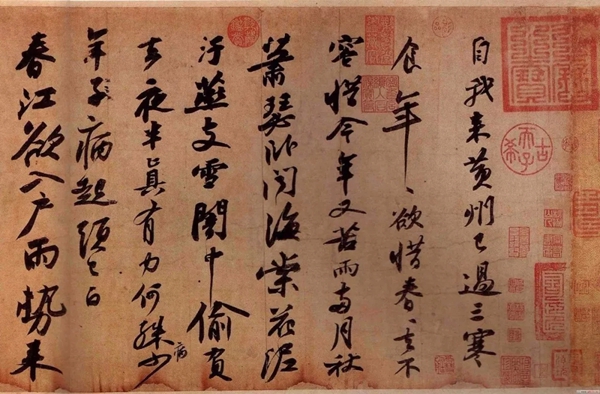 自我来黄州已過三寒
食年、欲惜春、去不
容惜今年又苦雨兩月秋
蕭瑟卧聞海棠花泥
汙燕支雪闇中偷負
去夜半真有力何殊少
病
年子病起頭已白
春江欲入户雨勢来
古希天子